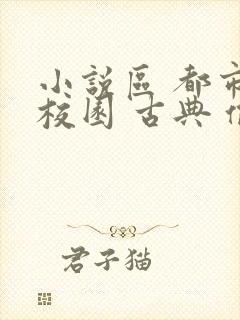 小說區 都市
校園 古典
君子猫